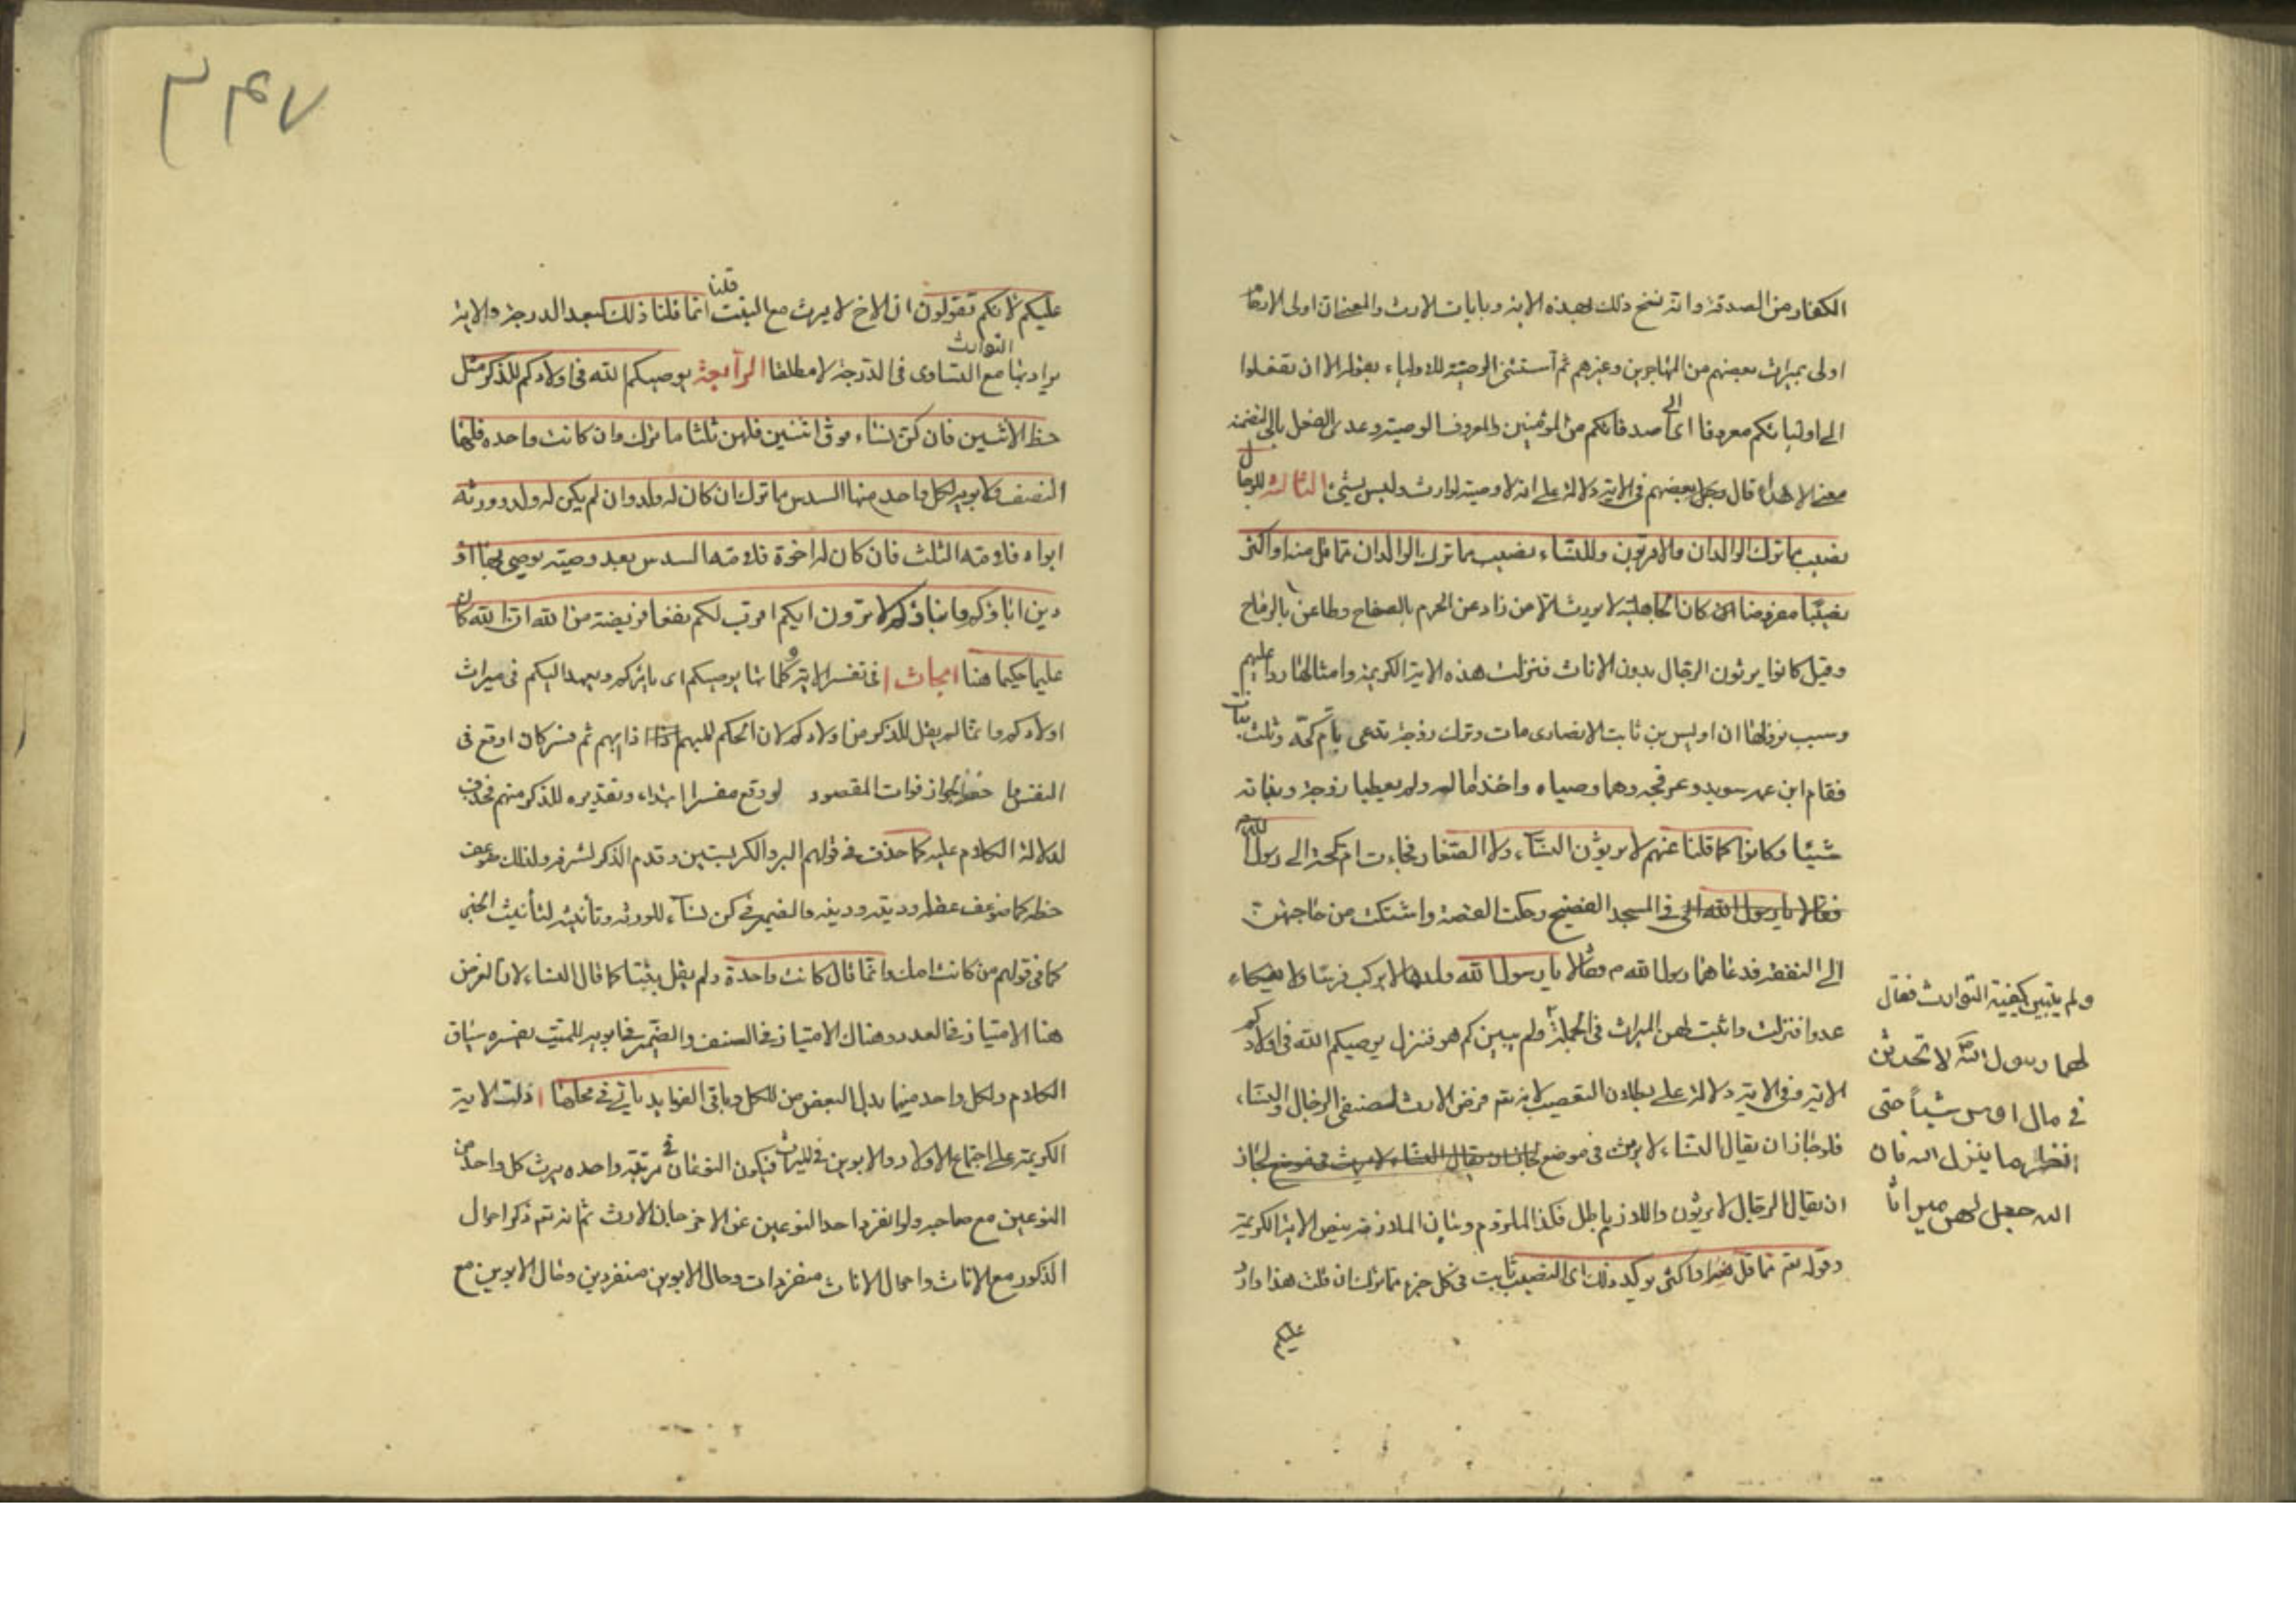 الكفار من الصدقة وانه نسخ ذلك بهذه الاية وبايات الارث والمعنى ان اولى الارحام
اولى بميراث بعضهم من المهاجرين وغيرهم ثم استثنى الوصية للاولياء بقوله الا ان تفعلوا
الى اوليائكم معروفا اى الى اصدقائكم من المؤمنين والمعروف الوصية وعدى الفعل بالى لتضمنه
معنى الاهداء قال بعضهم فى الاية دلالة على انه لا وصية لوارث وليس بشئ الثالثة للرجال
نصيب مما ترك الوالدان والاقربون وللنساء نصيب مما ترك الوالدان مما قل منه او اكثر
نصيبا مفروضا كان الجاهلية لا يورث الا من زاد عن الحرم بالصفاح وطاعن بالرماح
وقيل كانوا يرثون الرجال بدون الاناث فنزلت هذه الاية الكريمة وامثالها ردا عليهم
وسبب نزولها ان اويس بن ثابت الانصارى مات وترك زوجة تدعى بام كحة وثلث بنات
فقام ابن عمه سويد وعرفجه وهما وصياه واخذا ماله ولم يعطيا زوجة وبناته
شيئا وكانوا كما قلنا عنهم لا يرثون النساء ولا الصغار فجاءت ام كحة الى رسول الله
فقالا يا رسول الله الى فى المسجد الفضيح وحكت القصة واشتكت من حاجتهن
الى النفقة فدعاهما رسول الله م فقالا يا رسول الله ولدها لا يركب فرسا ولا ينكاء
عدوا فنزلت واثبت لهن الميراث فى الجملة ولم يبين كم هو فنزل يوصيكم الله فى اولادكم
الاية وفى الاية دلالة على بطلان التعصيب لانه تعم فرض الارث لصنفى الرجال والنساء
فلو جاز ان يقال النساء لا يرث فى موضع لجاز ان يقال النساء لا يرث فى موضع لجاز
ان يقال الرجال لا يرثون واللازم باطل فكذا الملزوم وبيان الملازمة بنص الاية الكريمة
وقوله تعم مما قل منه او اكثر توكيد ذلك اى النصيب ثابت فى كل جزء مما ترك ان قلت هذا وارد
عليكم
ولم يتبين كيفية التوارث فقال
لهما رسول الله لا تحدثن
فى مال اوس شيئا حتى
انظر ما ينزل الله فان
الله جعل لهن ميراثا
٣٤٧
عليكم لانكم تقولون ان الاخ لا يرث مع البنت قلنا انما قلنا ذلك لبعد الدرجة والاية
يراد بها مع التساوى فى الدرجة لا مطلقا الرابعة يوصيكم الله فى اولادكم للذكر مثل
التوارث
حظ الانثيين فان كن نساء فوق اثنتين فلهن ثلثا ما ترك وان كانت واحده فلها
النصف ولابويه لكل واحد منهما السدس مما ترك ان كان له ولد وان لم يكن له ولد وورثه
ابواه فلامه الثلث فان كان له اخوة فلامه السدس بعد وصية يوصى بها او
دين اباؤكم وابناؤكم لا تدرون ايكم اقرب لكم نفعا فريضة من الله ان الله كان
عليما حكيما هنا ابحاث ا فى تفسير الاية وكلماتها يوصيكم اى يامركم ويعهد اليكم فى ميراث
اولادكم وانما لم يقل للذكر من اولادكم لان الحكم المبهم اذا ابهم ثم فسر كان اوقع فى
النفس لجواز فوات المقصود لو وقع مفسرا ابتداء وتقديره للذكر منهم فحذف
لدلالة الكلام عليه كما حذف فى قولهم البر والكر بستين وقدم الذكر لشرفه ولذلك ضوعف
حظه كما ضوعف عقله وديته ودينه والضمير فى كن نساء للورثه وتانيثه لتأنيث الخبر
كما فى قولهم من كانت امك وانما قال كانت واحدة ولم يقل بنتا كما قال النساء لان الغرض
هنا الامتياز فى العدد وهناك الامتياز فى الصنف والضمير فى ابويه للميت يفسره سياق
الكلام ولكل واحد منهما بدل البعض من الكل وباقى الفوايد ياتى فى محلها ا دلت الاية
الكريمة على اجتماع الاولاد والابوين فى الميراث فيكون النوعان فى مرتبة واحده يرث كل واحد من
النوعين مع صاحبه ولو انفرد احد النوعين عن الاخر حاز الارث ثم انه تعم ذكر احوال
الذكور مع الاناث واحوال الاناث منفردات وحال الابوين منفردين وحال الابوين مع